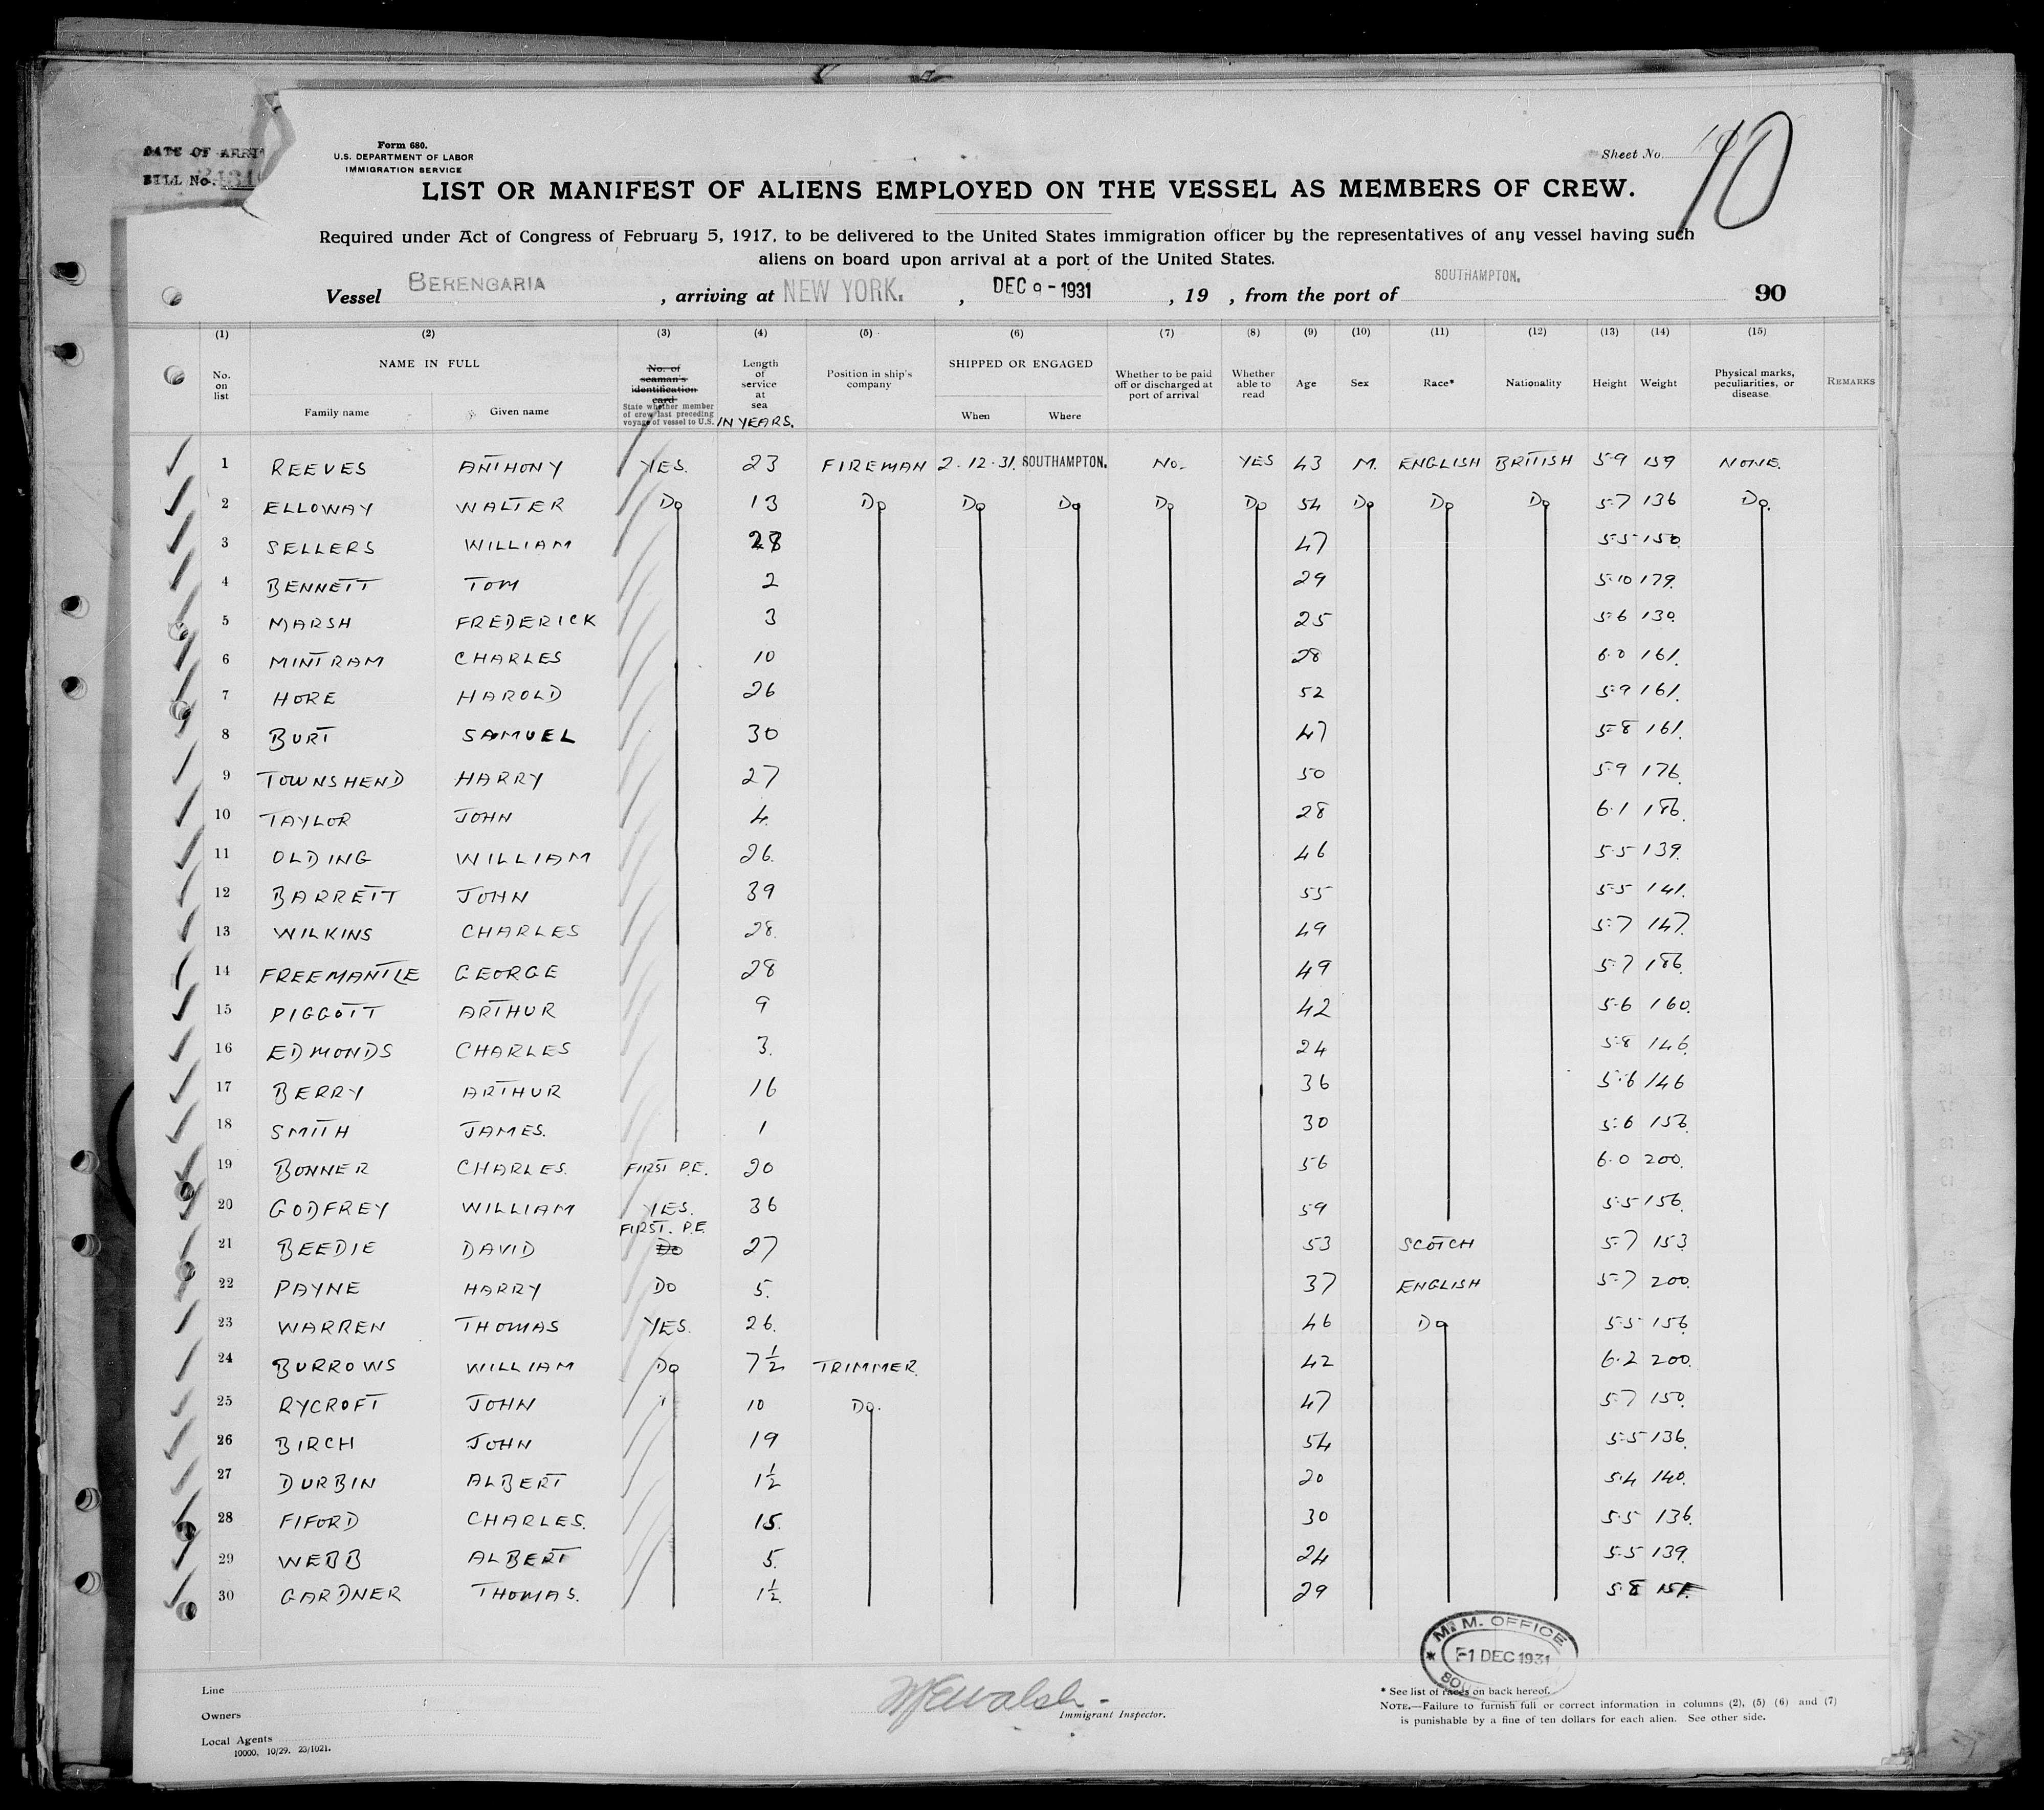 DATE OF ARRI
BILL No.
Form 680.
U.S. DEPARTMENT OF LABOR
IMMIGRATION SERVICE
Sheet No. 10
LIST OR MANIFEST OF ALIENS EMPLOYED ON THE VESSEL AS MEMBERS OF CREW.
Required under Act of Congress of February 5, 1917, to be delivered to the United States immigration officer by the representatives of any vessel having such
aliens on board upon arrival at a port of the United States.
Vessel BERENGARIA , arriving at NEW YORK. , DEC 9 - 1931 , 19 , from the port of SOUTHAMPTON. 90
(1) (2) (3) (4) (5) (6) (7) (8) (9) (10) (11) (12) (13) (14) (15)
No. on list NAME IN FULL Family name Given name No. of seaman's identification card State whether member of crew last preceding voyage of vessel to U.S. Length of service at sea IN YEARS. Position in ship's company SHIPPED OR ENGAGED When Where Whether to be paid off or discharged at port of arrival Whether able to read Age Sex Race* Nationality Height Weight Physical marks, peculiarities, or disease. REMARKS
1 REEVES ANTHONY YES. 23 FIREMAN 2.12.31. SOUTHAMPTON. No. YES 43 M. ENGLISH BRITISH 5-9 159 NONE.
2 ELLOWAY WALTER Do 13 Do Do Do Do Do 54 Do Do Do 5-7 136 Do.
3 SELLERS WILLIAM 28 47 5-5 150.
4 BENNETT TOM 2 29 5-10 179.
5 MARSH FREDERICK 3 25 5-6 130.
6 MINTRAM CHARLES 10 28 6.0 161.
7 HORE HAROLD 26 52 5-9 161.
8 BURT SAMUEL 30 47 5-8 161.
9 TOWNSHEND HARRY 27 50 5-9 176.
10 TAYLOR JOHN 4. 28 6.1 186.
11 OLDING WILLIAM 26. 46 5.5 139.
12 BARRETT JOHN 39 55 5-5 141.
13 WILKINS CHARLES 28. 49 5-7 147.
14 FREEMANTLE GEORGE 28 49 5-7 186.
15 PIGGOTT ARTHUR 9 42 5-6 160.
16 EDMONDS CHARLES 3. 24 5-8 146.
17 BERRY ARTHUR 16 36 5-6 146
18 SMITH JAMES. 1 30 5-6 156.
19 BONNER CHARLES. FIRST P.E. 20 56 6.0 200.
20 GODFREY WILLIAM YES. 36 59 5-5 156.
21 BEEDIE DAVID FIRST. P.E. Do 27 53 SCOTCH 5-7 153
22 PAYNE HARRY DO 5. 37 ENGLISH 5-7 200.
23 WARREN THOMAS YES. 26. 46 Do 5-5 156.
24 BURROWS WILLIAM Do 7½ TRIMMER. 42 6.2 200.
25 RYCROFT JOHN 10 Do. 47 5-7 150.
26 BIRCH JOHN 19 54 5-5 136.
27 DURBIN ALBERT 1½ 20 5.4 140.
28 FIFORD CHARLES. 15. 30 5.5 136.
29 WEBB ALBERT 5. 24 5-5 139.
30 GARDNER THOMAS. 1½. 29 5.8
M. M. OFFICE
1 DEC 1931
Line
Owners
Local Agents
10000. 10/29. 23/1021.
Immigrant Inspector.
* See list of races on back hereof.
NOTE.—Failure to furnish full or correct information in columns (2), (5) (6) and (7)
is punishable by a fine of ten dollars for each alien. See other side.